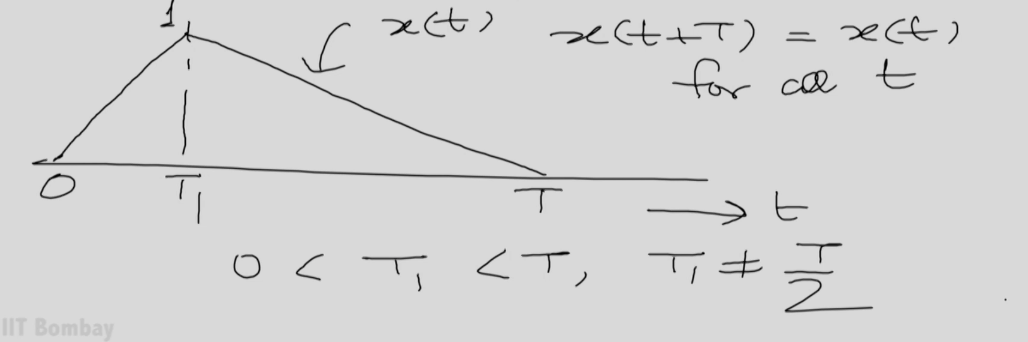 1
x(t) x(t+T) = x(t)
for all t
0 T₁ T
t
0 < T₁ < T, T₁ ≠ T/2
IIT Bombay